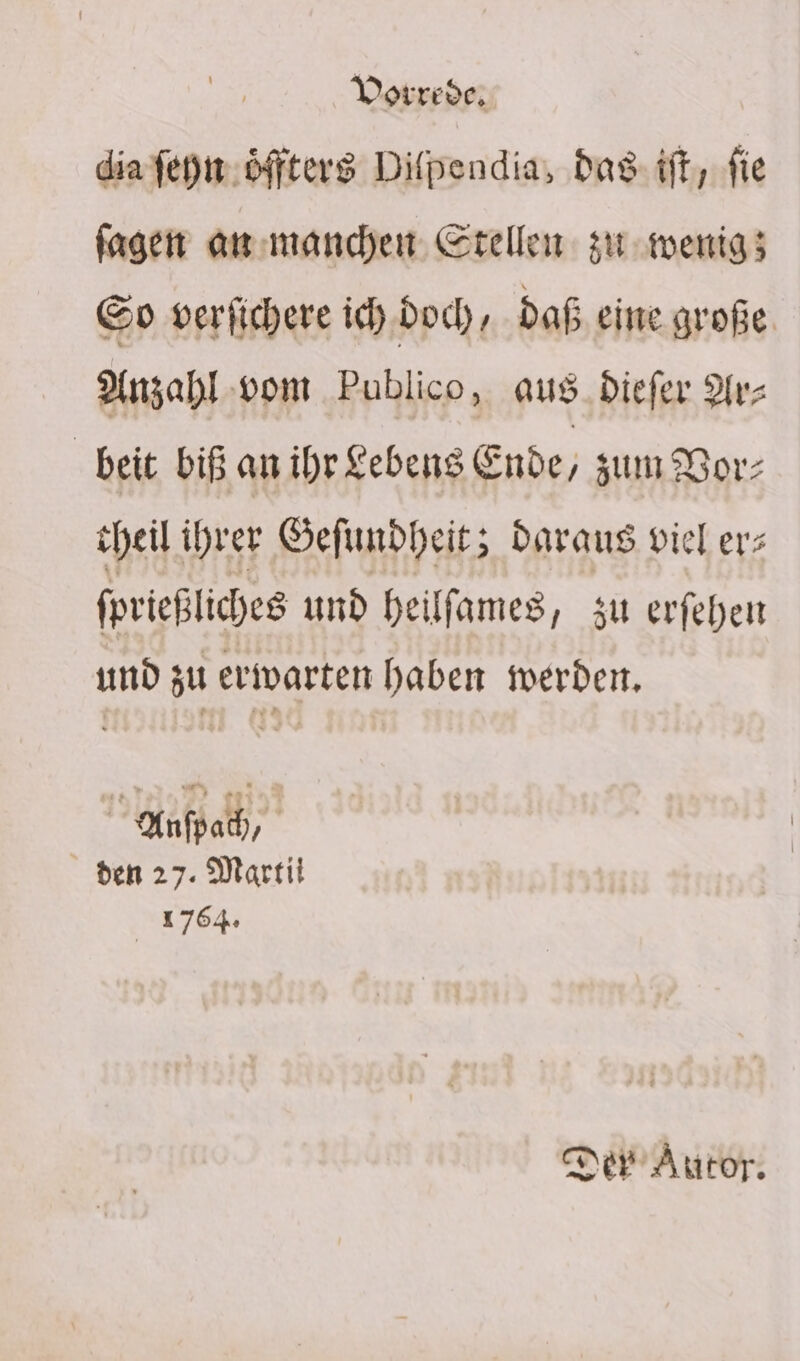 Vorrede.
dia ſeyn oͤffters Diſpendia, das iſt, ſie
ſagen an manchen Stellen zu wenig;
So verſichere ich doch, daß eine große
Anzahl vom Publico, aus dieſer Ar⸗
beit biß an ihr Lebens Ende, zum Vor⸗
theil ihrer Geſundheit; daraus viel er⸗
ſprießliches und heilſames, zu erſehen
und zu erwarten haben werden.
Anſpach,
den 27. Martii
1764.
Der Autor.